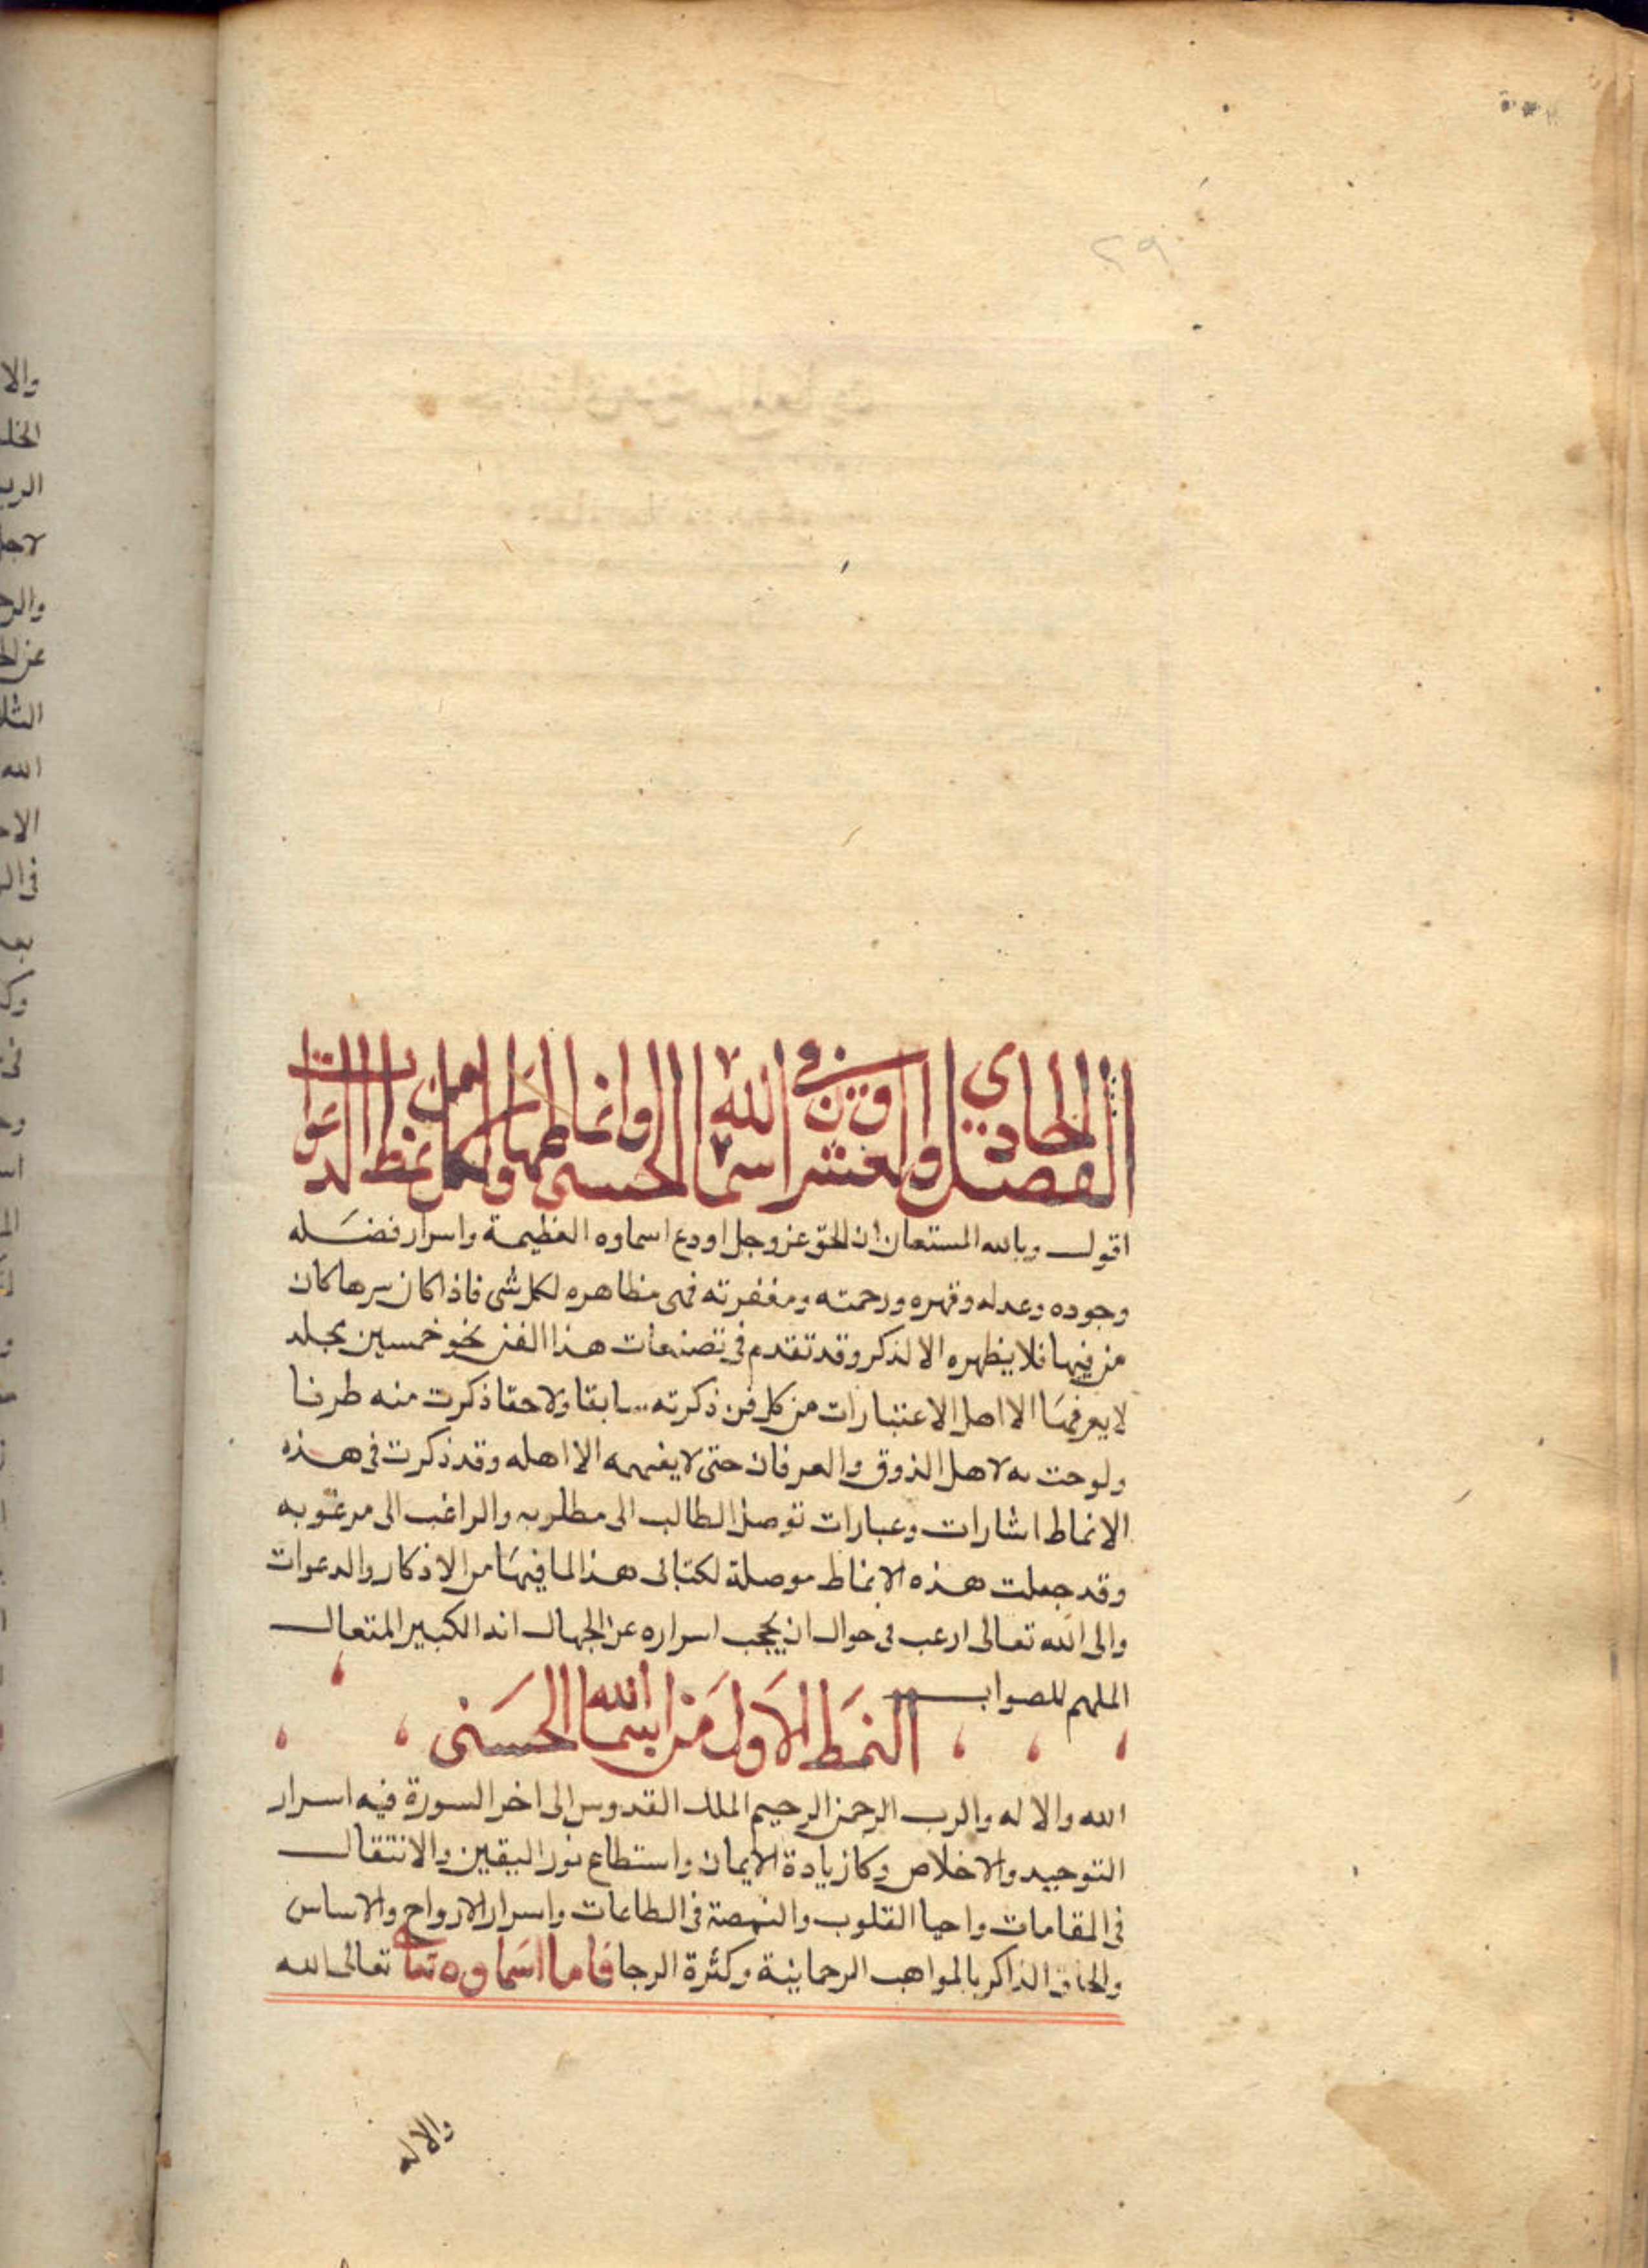 ٢٩
الفصل الحادي والعشرون في اسما الله الحسنى وانماطها ولكل نمط الدعوات
اقول وبالله المستعان ان الحق عز وجل اودع اسماوه العظيمة واسرار فضله
وجوده وعدله وقهره ورحمته ومغفرته فهى مظاهره لكل شى فاذا كان سرها كان
من فيها فلا يظهره الا لذكر وقد تقدم فى تصنيفات هذا الفن نحو خمسين مجلد
لا يعرفها الا اهل الاعتبارات من كل فن ذكرته سابقا ولاحقا ذكرت منه طرفا
ولوحت به لاهل الذوق والعرفان حتى لا يفهمه الا اهله وقد ذكرت فى هذه
الانماط اشارات وعبارات توصل الطالب الى مطلوبه والراغب الى مرغوبه
وقد جعلت هذه الانماط موصلة لكتابى هذا لما فيها من الاذكار والدعوات
والى الله تعالى ارغب فى حوال ان يحجب اسراره عن الجهال انه الكبير المتعال
الملهم للصواب
النمط الاول من اسما الله الحسنى
الله والاله والرب الرحمن الرحيم الملك القدوس الى اخر السورة فيه اسرار
التوحيد والاخلاص وكا زيادة الايمان واستطاع نور اليقين والانتقال
فى المقامات واحيا القلوب والنهضة فى الطاعات واسرار الارواح والاساس
والحاق الذاكر بالمواهب الرحمانية وكثرة الرجا فاما اسماوه تعا تعالى الله
والاله